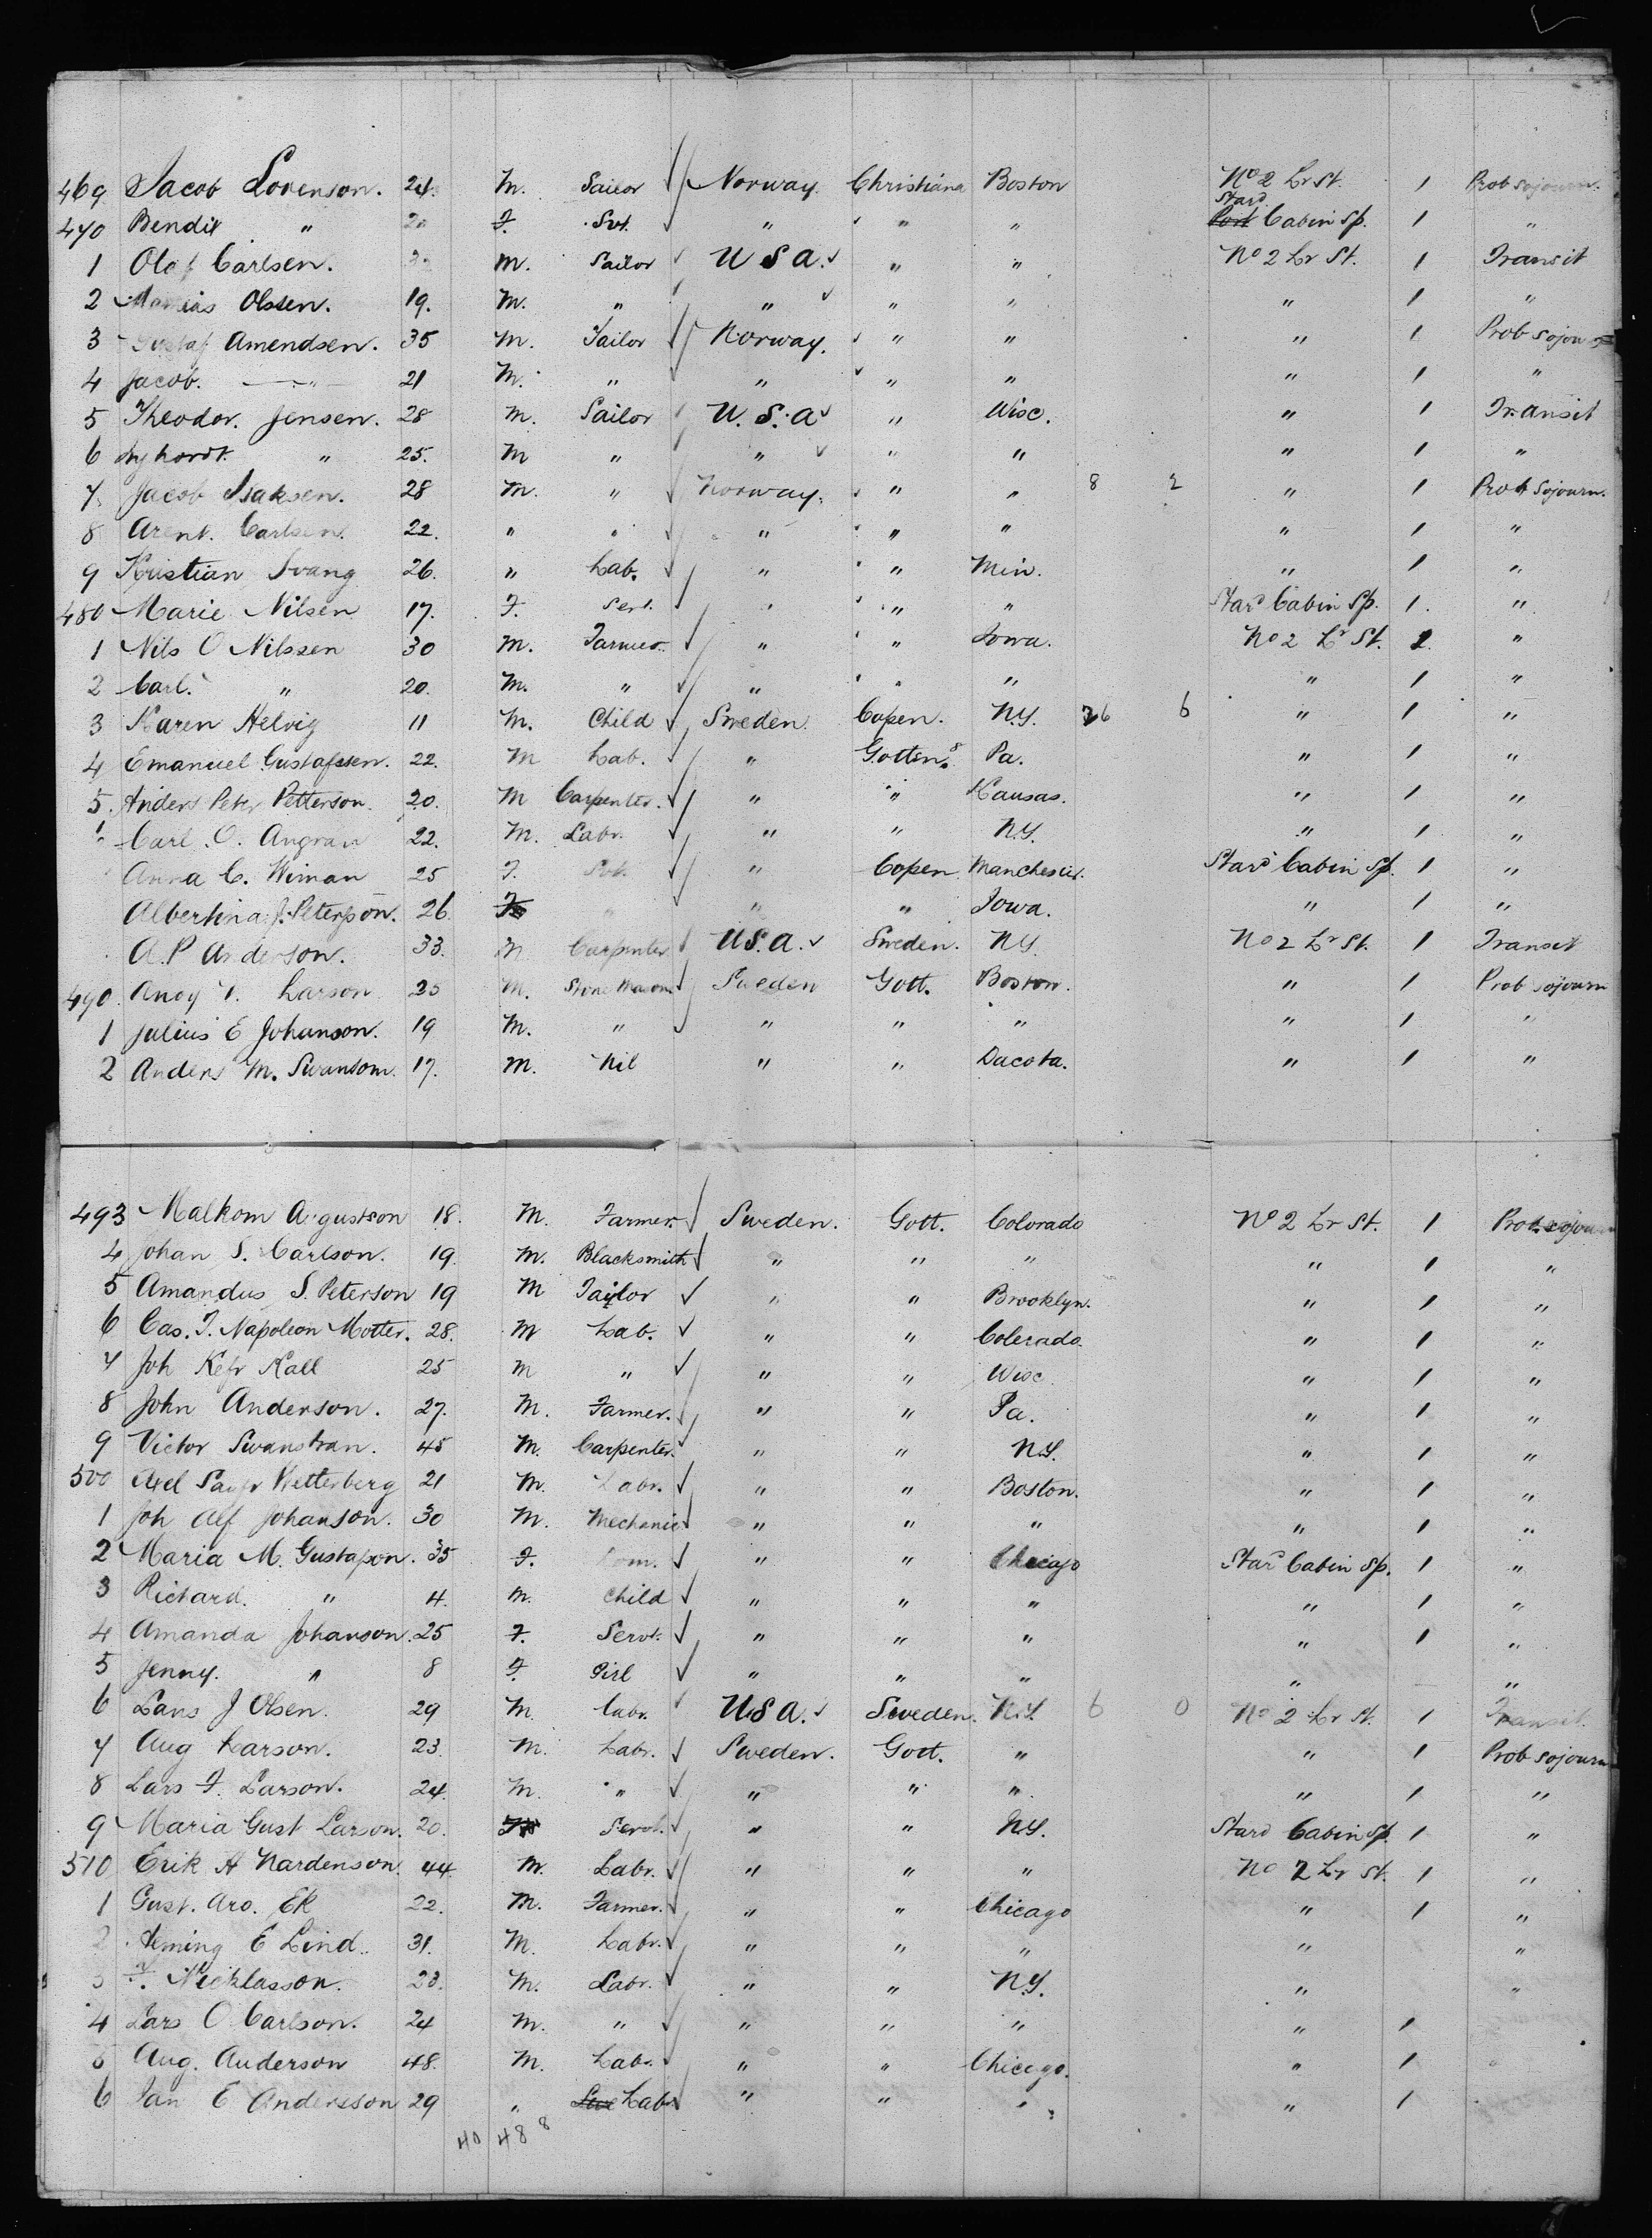 469 Jacob Lorenson. 24. M. Sailor Norway. Christiana Boston No 2 Lr St. 1 Prob sojourn.
470 Bendit " F. Svt. " " " Stard Port Cabin Sp. 1 "
1 Olaf Carlsen. M. Sailor U S A. " " No 2 Lr St. 1 Transit
2 Olssen. 19. M. " " " " " 1 "
3 Gustaf Amendsen. 35 M. Tailor Norway. " " " 1 Prob sojourn
4 Jacob. " 21 M. " " " " " 1 "
5 Theodor. Jensen. 28 M. Sailor U. S. A " Wisc. " 1 Transit
6 " 25. M " " " " " 1 "
7 Jacob Isaksen. 28 M. " Norway. " " 8 2 " 1 Prob Sojourn.
8 Arent. Carlsen. 22. " " " " " " 1 "
9 Kristian Svang 26. " Lab. " " Min. " 1 "
480 Marie Nilsen 17. F. Servt. " " " Stard Cabin Sp. 1. "
1 Nils O Nilssen 30 M. Farmer. " " Iowa. No 2 Lr St. 1. "
2 Carl. " 20. M. " " " " " 1 "
3 Karen Helvig 11 M. Child Sweden. Copen. N.Y. 6 " 1 "
4 Emanuel Gustafssen. 22. M Lab. " Gotten8. Pa. " 1 "
5. Anders Peter Petterson. 20. M Carpenter. " " Kansas. " 1 "
Carl. O. Angran 22. M. Labr. " " N.Y. " 1 "
Anna C. Wiman 25 F. Svt. " Copen Manchester. Stard Cabin Sp. 1 "
Albertina J. Peterson. 26. F " " " Iowa. " 1 "
A.P Anderson. 33. M Carpenter U S. A. Sweden. N.Y. No 2 Lr St. 1 Transit
490. Larson M. Stone Mason Sweden Gott. Boston. " 1 Prob sojourn
1 Julius E Johanson. 19 M. " " " " " 1 "
2 Anders M. Swansom. 17. M. Nil " " Dacota. " 1 "
493 Malkom Agustson 18. M. Farmer. Sweden. Gott. Colorado No 2 Lr St. 1 Prob sojourn
4 Johan S. Carlson. 19. M. Blacksmith " " " " 1 "
5 Amandus S. Peterson 19 M Tailor " " Brooklyn. " 1 "
6 Cas. T. Napoleon Motter. 28. M Lab. " " Colerado. " 1 "
7 Joh Kefr Kall 25 M " " " Wisc " 1 "
8 John Anderson. 27. M. Farmer. " " Pa. " 1 "
9 Victor Swanstran. 45 M. Carpenter. " " N.Y. " 1 "
500 Axel Wetterberg 21 M. Labr. " " Boston. " 1 "
1 Joh Alf Johanson. 30 M. Mechanic " " " " 1 "
2 Maria M. Gustafson. 35 F. " " Chicago Stard Cabin Sp. 1 "
3 Richard. " 4. M. Child " " " " 1 "
4 Amanda Johanson. 25 F. Servt. " " " " 1 "
5 Jenny. " 8 F. Girl " " " " "
6 Lars J Olsen. 29 M. Labr. U S A. Sweden. N.Y. 6 0 No 2 Lr St. 1 Transit.
7 Aug Larson. 23. M. Labr. Sweden. Gott. " " 1 Prob sojourn
8 Lars F. Larson. 24. M. " " " " " 1 "
9 Maria Gust Larson. 20. Servt. " " N.Y. Stard Cabin Sp. 1 "
510 Erik A Nardenson. 44. M. Labr. " " " No 2 Lr St. 1 "
1 Gust. Aro. Ek 22. M. Farmer. " " Chicago " 1 "
2 E Lind. 31. M. Labr. " " " " "
3 Necklasson. 23. M. Labr. " " N.Y. " "
4 Lars O Carlson. 24 M. " " " " " 1
5 Aug. Anderson 48. M. Labr. " " Chicago. " 1
6 Jan E Andersson 29 " Labr " " " " 1
40 48 8